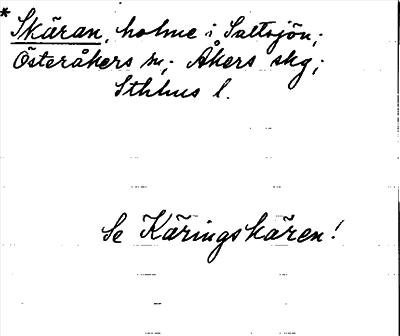 * Skäran, holme i Saltsjön;
Österåkers sn; Åkers skg;
Sthlms l.
Se Käringskären!